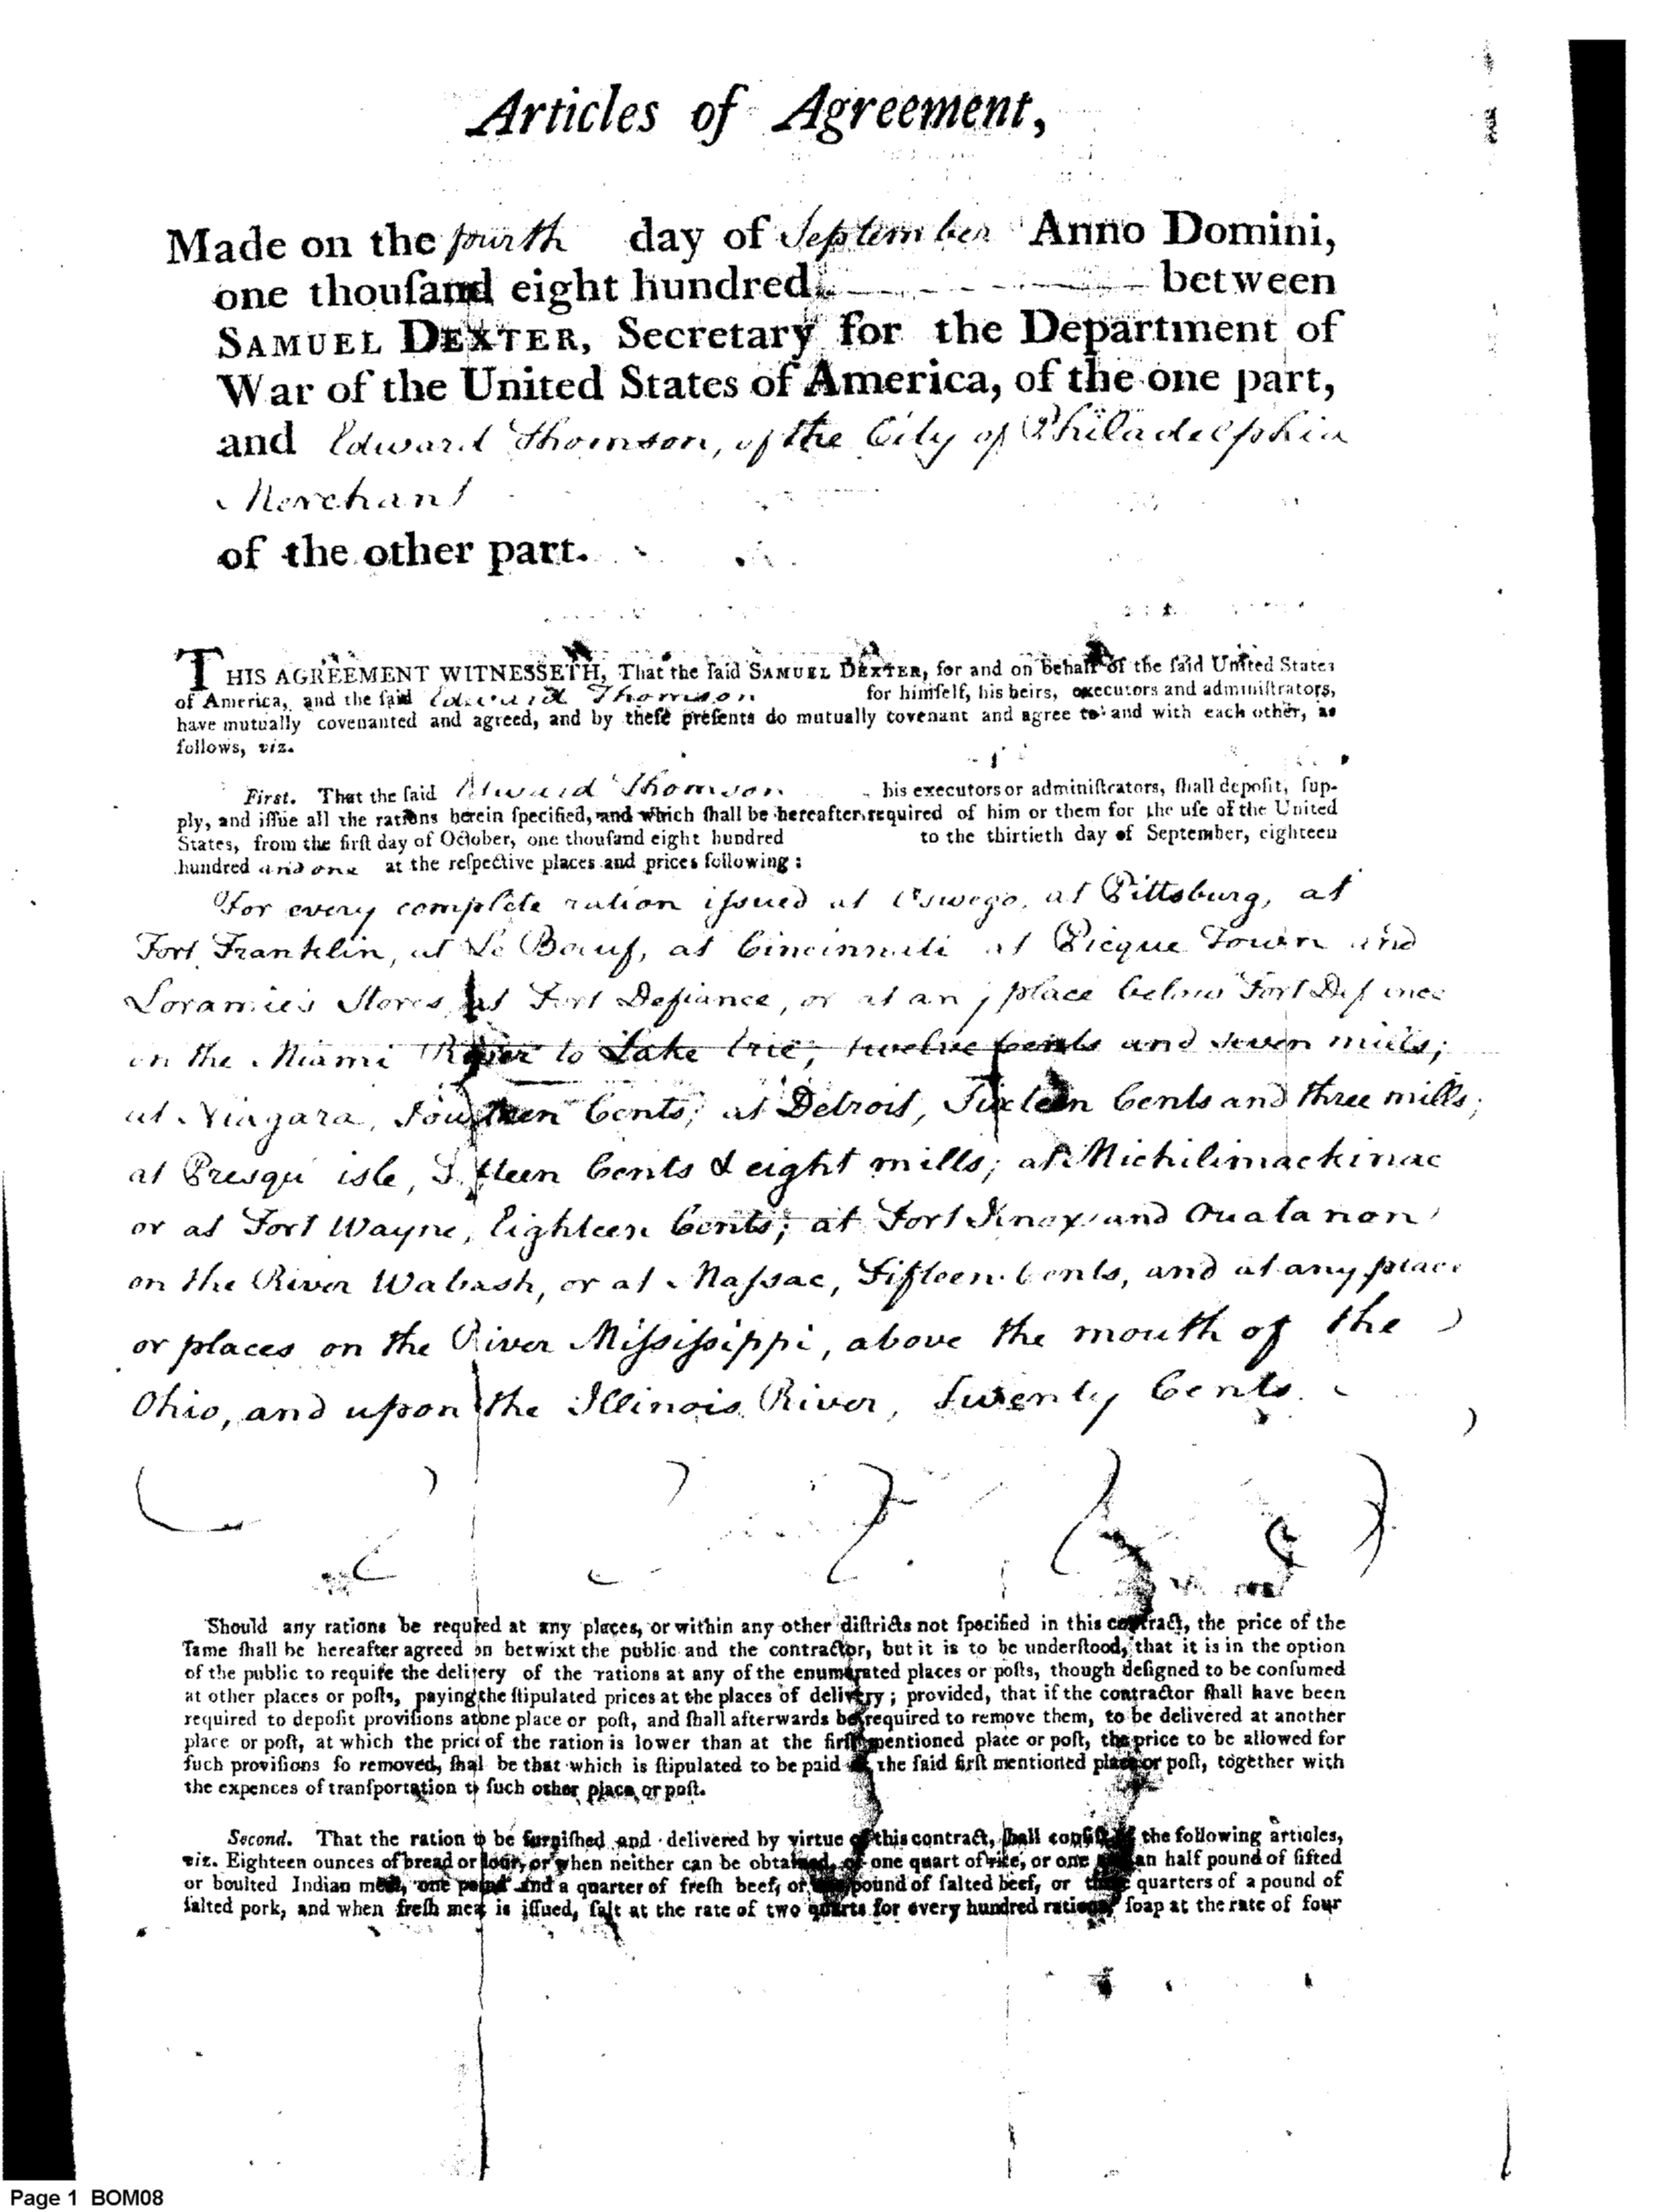 Articles of Agreement,
Made on the fourth day of September Anno Domini,
one thouſand eight hundred between
SAMUEL DEXTER, Secretary for the Department of
War of the United States of America, of the one part,
and Edward Thomson, of the City of Philadelphia
Merchant
of the other part.
THIS AGREEMENT WITNESSETH, That the ſaid SAMUEL DEXTER, for and on behalf of the ſaid United States
of America, and the ſaid Edward Thomson for himſelf, his heirs, executors and adminiſtrators,
have mutually covenanted and agreed, and by theſe preſents do mutually covenant and agree to and with each other, as
follows, viz.
First. That the ſaid Edward Thomson his executors or adminiſtrators, ſhall depoſit, ſup-
ply, and iſſue all the rations herein ſpecified, and which ſhall be hereafter required of him or them for the uſe of the United
States, from the firſt day of October, one thouſand eight hundred to the thirtieth day of September, eighteen
hundred and one at the reſpective places and prices following:
For every complete ration iſsued at Oswego, at Pittsburg, at
Fort Franklin, at Le Bœuf, at Cincinnati at Picque Town and
Loramie's Stores at Fort Defiance, or at any place below Fort Defiance
on the Miami River to Lake Erie, twelve Cents and seven mills;
at Niagara, Fourteen Cents; at Detroit, Sixteen Cents and three mills;
at Presqu' isle, Fifteen Cents & eight mills; at Michilimackinac
or at Fort Wayne, Eighteen Cents; at Fort Knox and Ouatanon
on the River Wabash, or at Maſsac, Fifteen Cents, and at any place
or places on the River Miſsiſsippi, above the mouth of the
Ohio, and upon the Illinois River, Twenty Cents.
Should any rations be required at any places, or within any other diſtricts not ſpecified in this contract, the price of the
ſame ſhall be hereafter agreed on betwixt the public and the contractor, but it is to be underſtood, that it is in the option
of the public to require the delivery of the rations at any of the enumerated places or poſts, though deſigned to be conſumed
at other places or poſts, paying the ſtipulated prices at the places of delivery; provided, that if the contractor ſhall have been
required to depoſit proviſions at one place or poſt, and ſhall afterwards be required to remove them, to be delivered at another
place or poſt, at which the price of the ration is lower than at the firſt mentioned place or poſt, the price to be allowed for
ſuch proviſions ſo removed, ſhal be that which is ſtipulated to be paid at the ſaid firſt mentioned place or poſt, together with
the expences of tranſportation to ſuch other place or poſt.
Second. That the ration to be furniſhed and delivered by virtue of this contract, ſhall conſiſt of the following articles,
viz. Eighteen ounces of bread or flour, or when neither can be obtained, of one quart of rice, or one and an half pound of ſifted
or boulted Indian meal, one pound and a quarter of freſh beef, or one pound of ſalted beef, or three quarters of a pound of
ſalted pork, and when freſh meat is iſſued, ſalt at the rate of two quarts for every hundred rations, ſoap at the rate of four
Page 1 BOM08